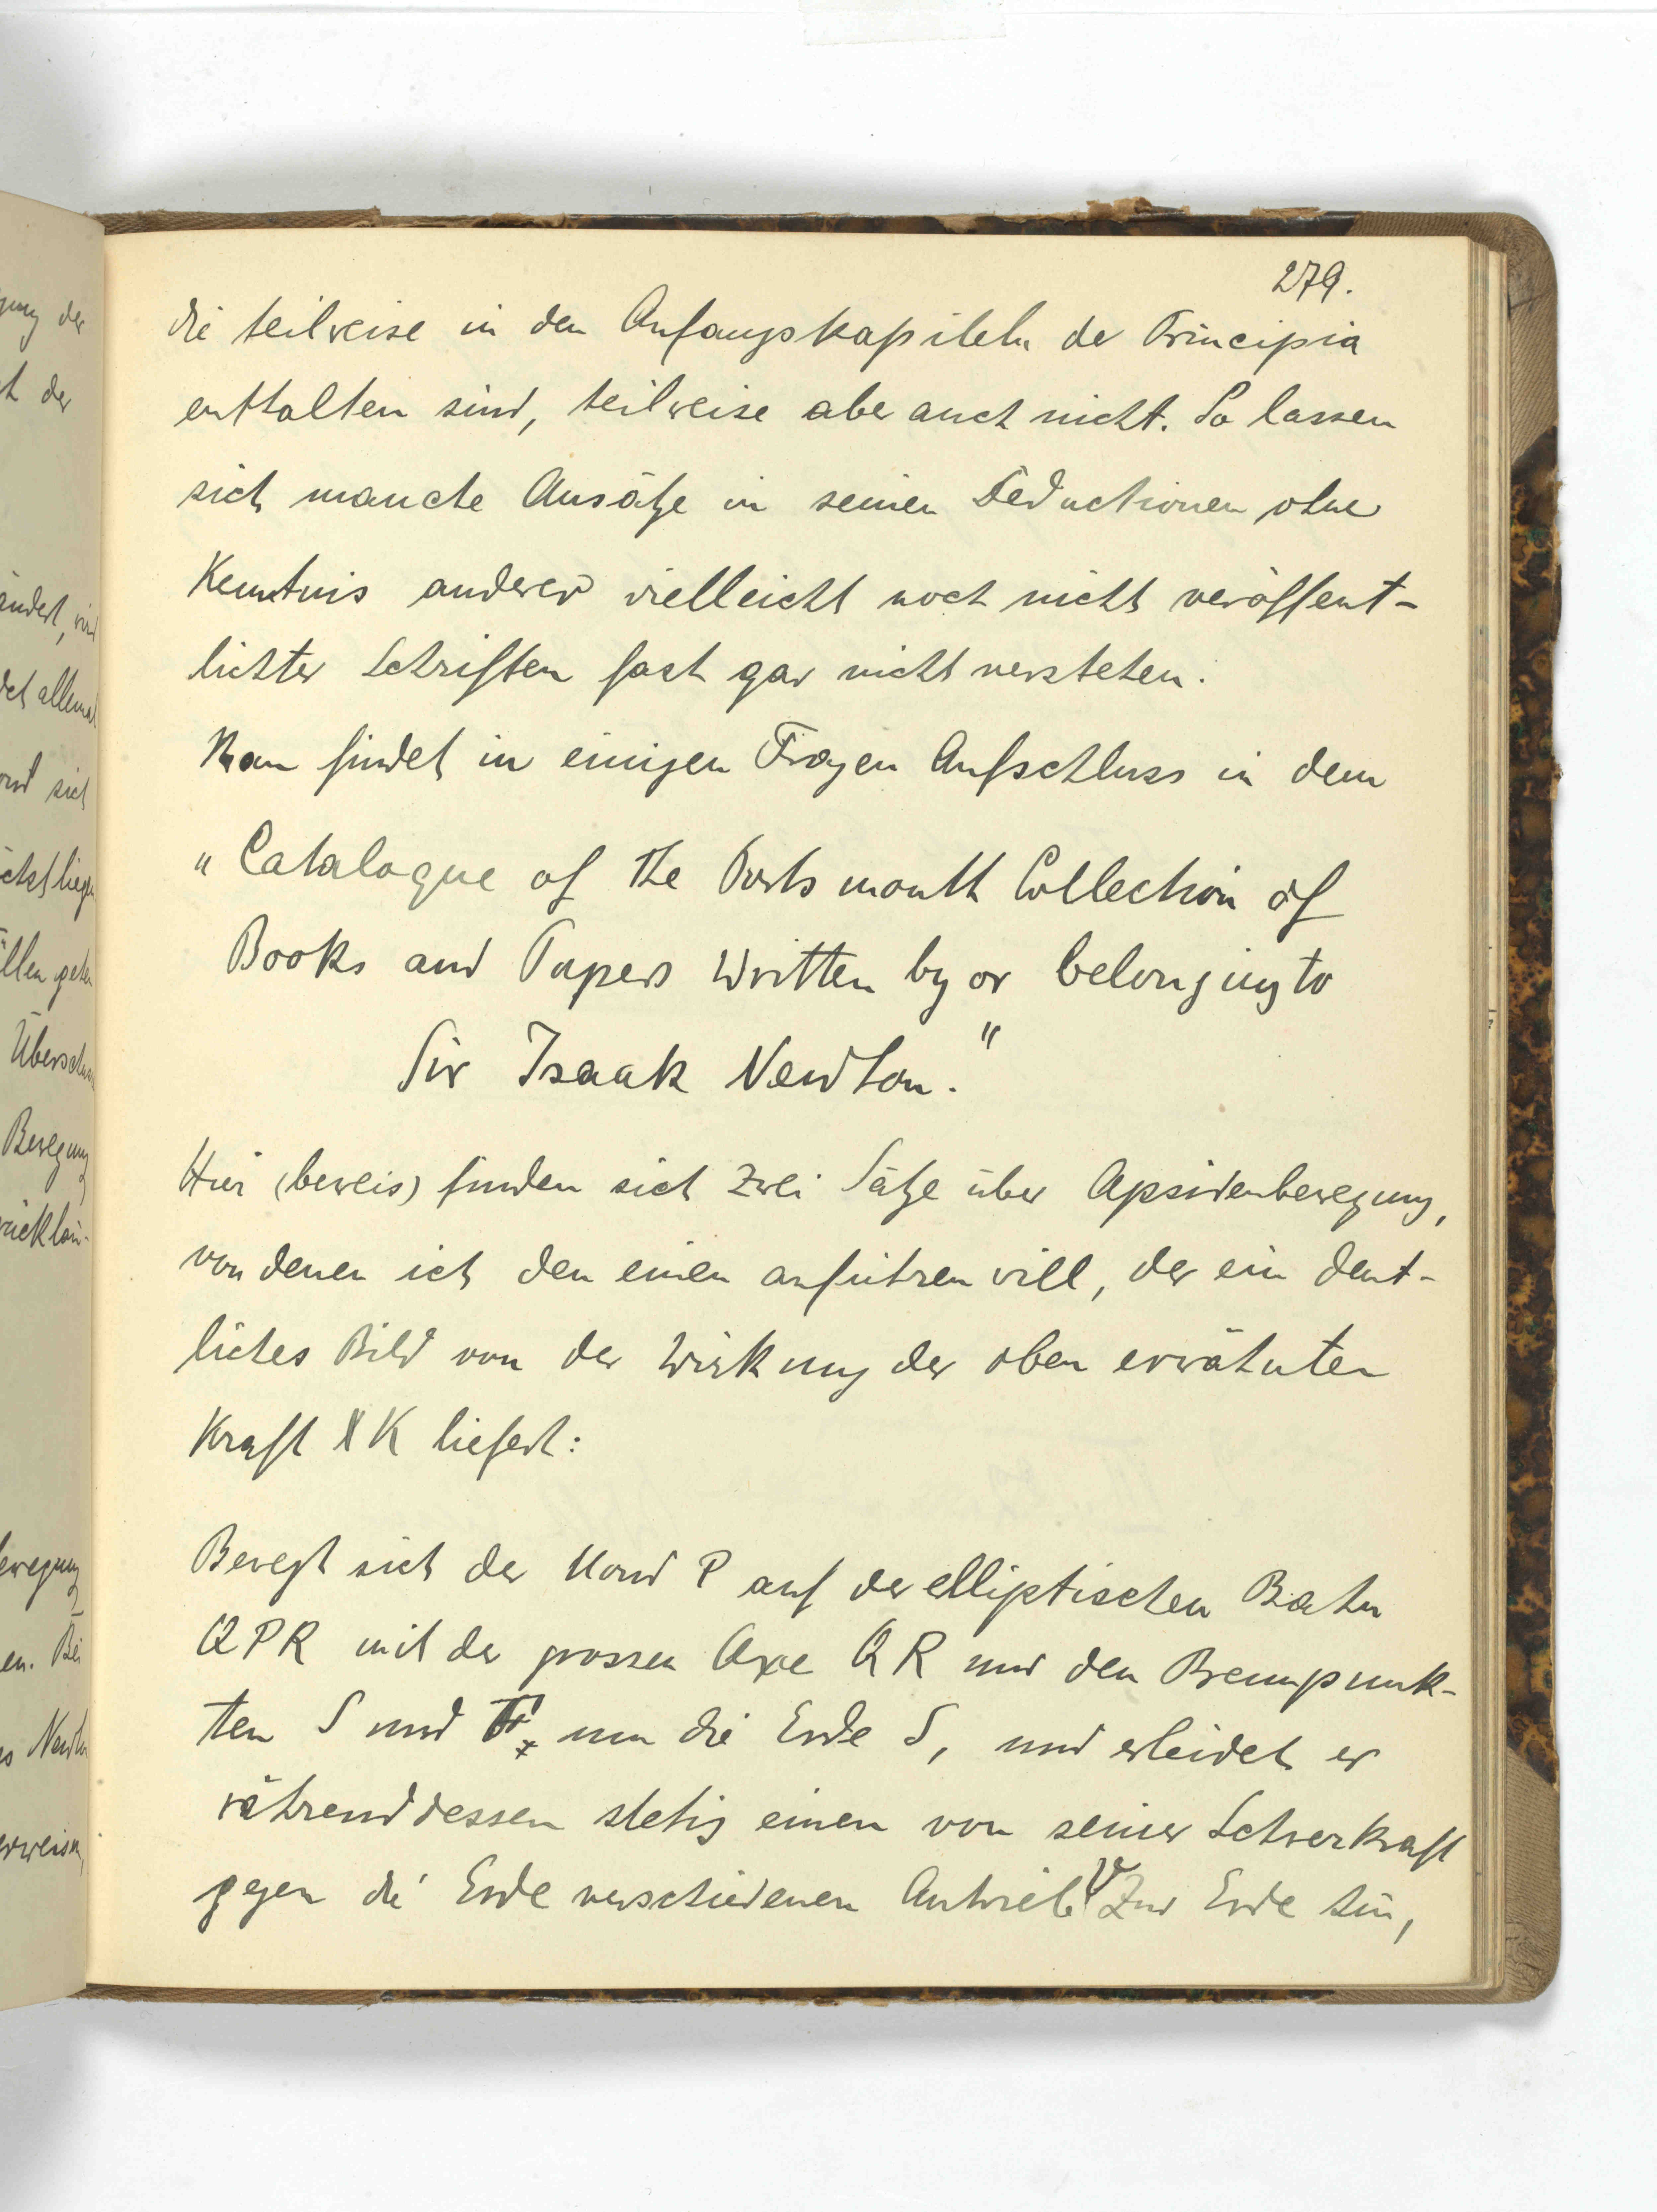 279.
die teilweise in den Anfangskapiteln der Principia
enthalten sind, teilweise aber auch nicht. So lassen
sich manche Ansätze in seinen Deductionen ohne
Kenntnis anderer vielleicht noch nicht veröffent-
lichter Schriften fast gar nicht verstehen.
Man findet in einigen Fragen Aufschluss in dem
„Catalogue of the Portsmouth Collection of
Books and Papers written by or belonging to
Sir Isaak Newton."
Hier (beweis) finden sich zwei Sätze über Apsidenbewegung,
von denen ich den einen anführen will, der ein deut-
liches Bild von der Wirkung der oben erwähnten
Kraft K liefert:
Bewegt sich der Mond P auf der elliptischen Bahn
QPR mit der grossen Axe QR und den Brennpunk-
ten S und F um die Erde S, und erleidet er
währenddessen stetig einen von seiner Schwerkraft
gegen die Erde verschiedenen Antrieb V zur Erde hin,
gung der
ht der
ändert, wird
det allemal
und sich
ächst liegen
ällen gehen
Bewegung
rücklau-
Bewegung
en. Bei
es Newton
erweisen,